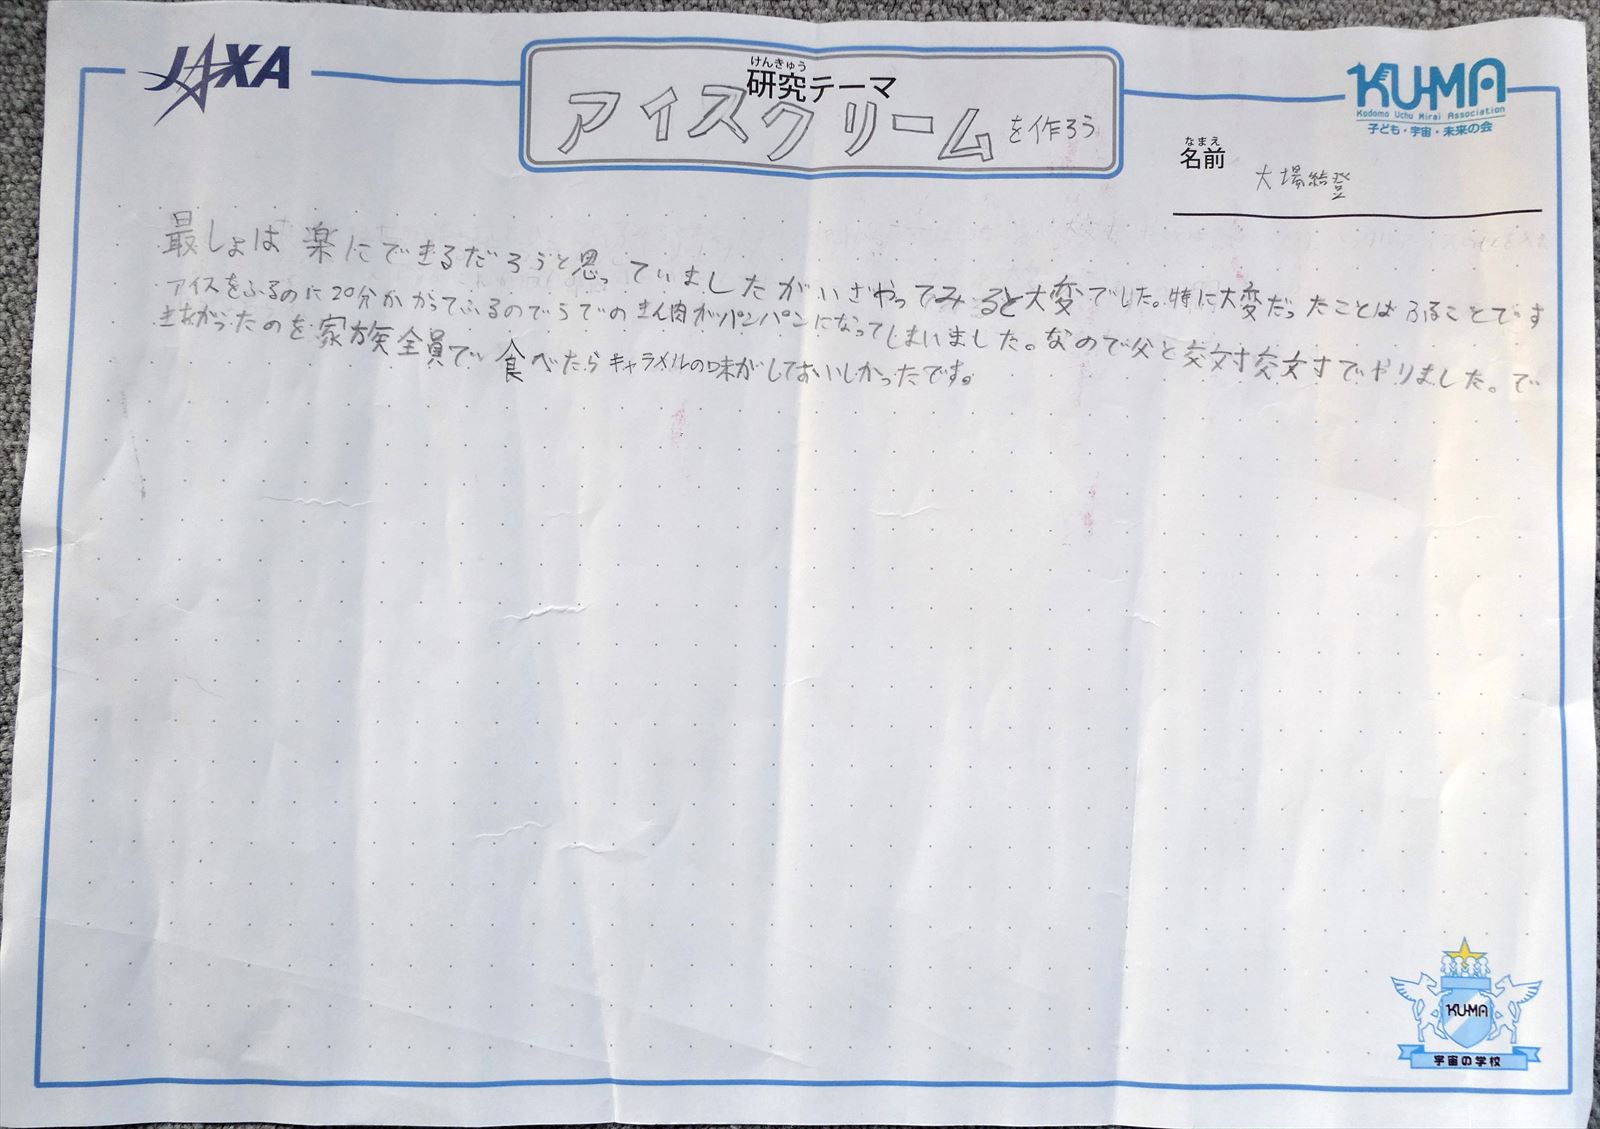 JAXA
けんきゅう
研究テーマ
アイスクリームを作ろう
KU-MA
Kodomo Uchu Mirai Association
子ども・宇宙・未来の会
なまえ
名前
大場結登
最しょは楽にできるだろうと思っていましたがいざやってみると大変でした。特に大変だったことはふることです
アイスをふるのに20分かかってふるのでうでのきん肉がパンパンになってしまいました。なので父と交対交対でやりました。で
きあがったのを家族全員で食べたらキャラメルの味がしておいしかったです。
KU-MA
宇宙の学校